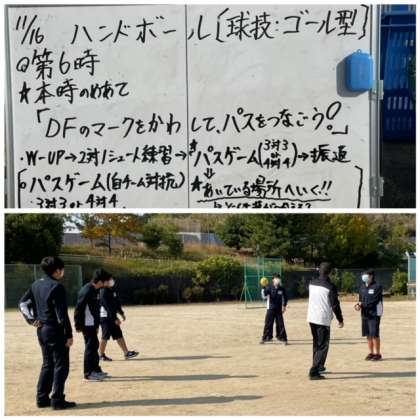 11/16 ハンドボール〔球技:ゴール型〕
◎第6時
★本時のめあて
「DFのマークをかわして、パスをつなごう!」
・W-UP→2対1シュート練習→パスゲーム(3対3 4対4)→振返
パスゲーム(自チーム対抗)
★あいている場所へいく!!
・3対3 or 4対4